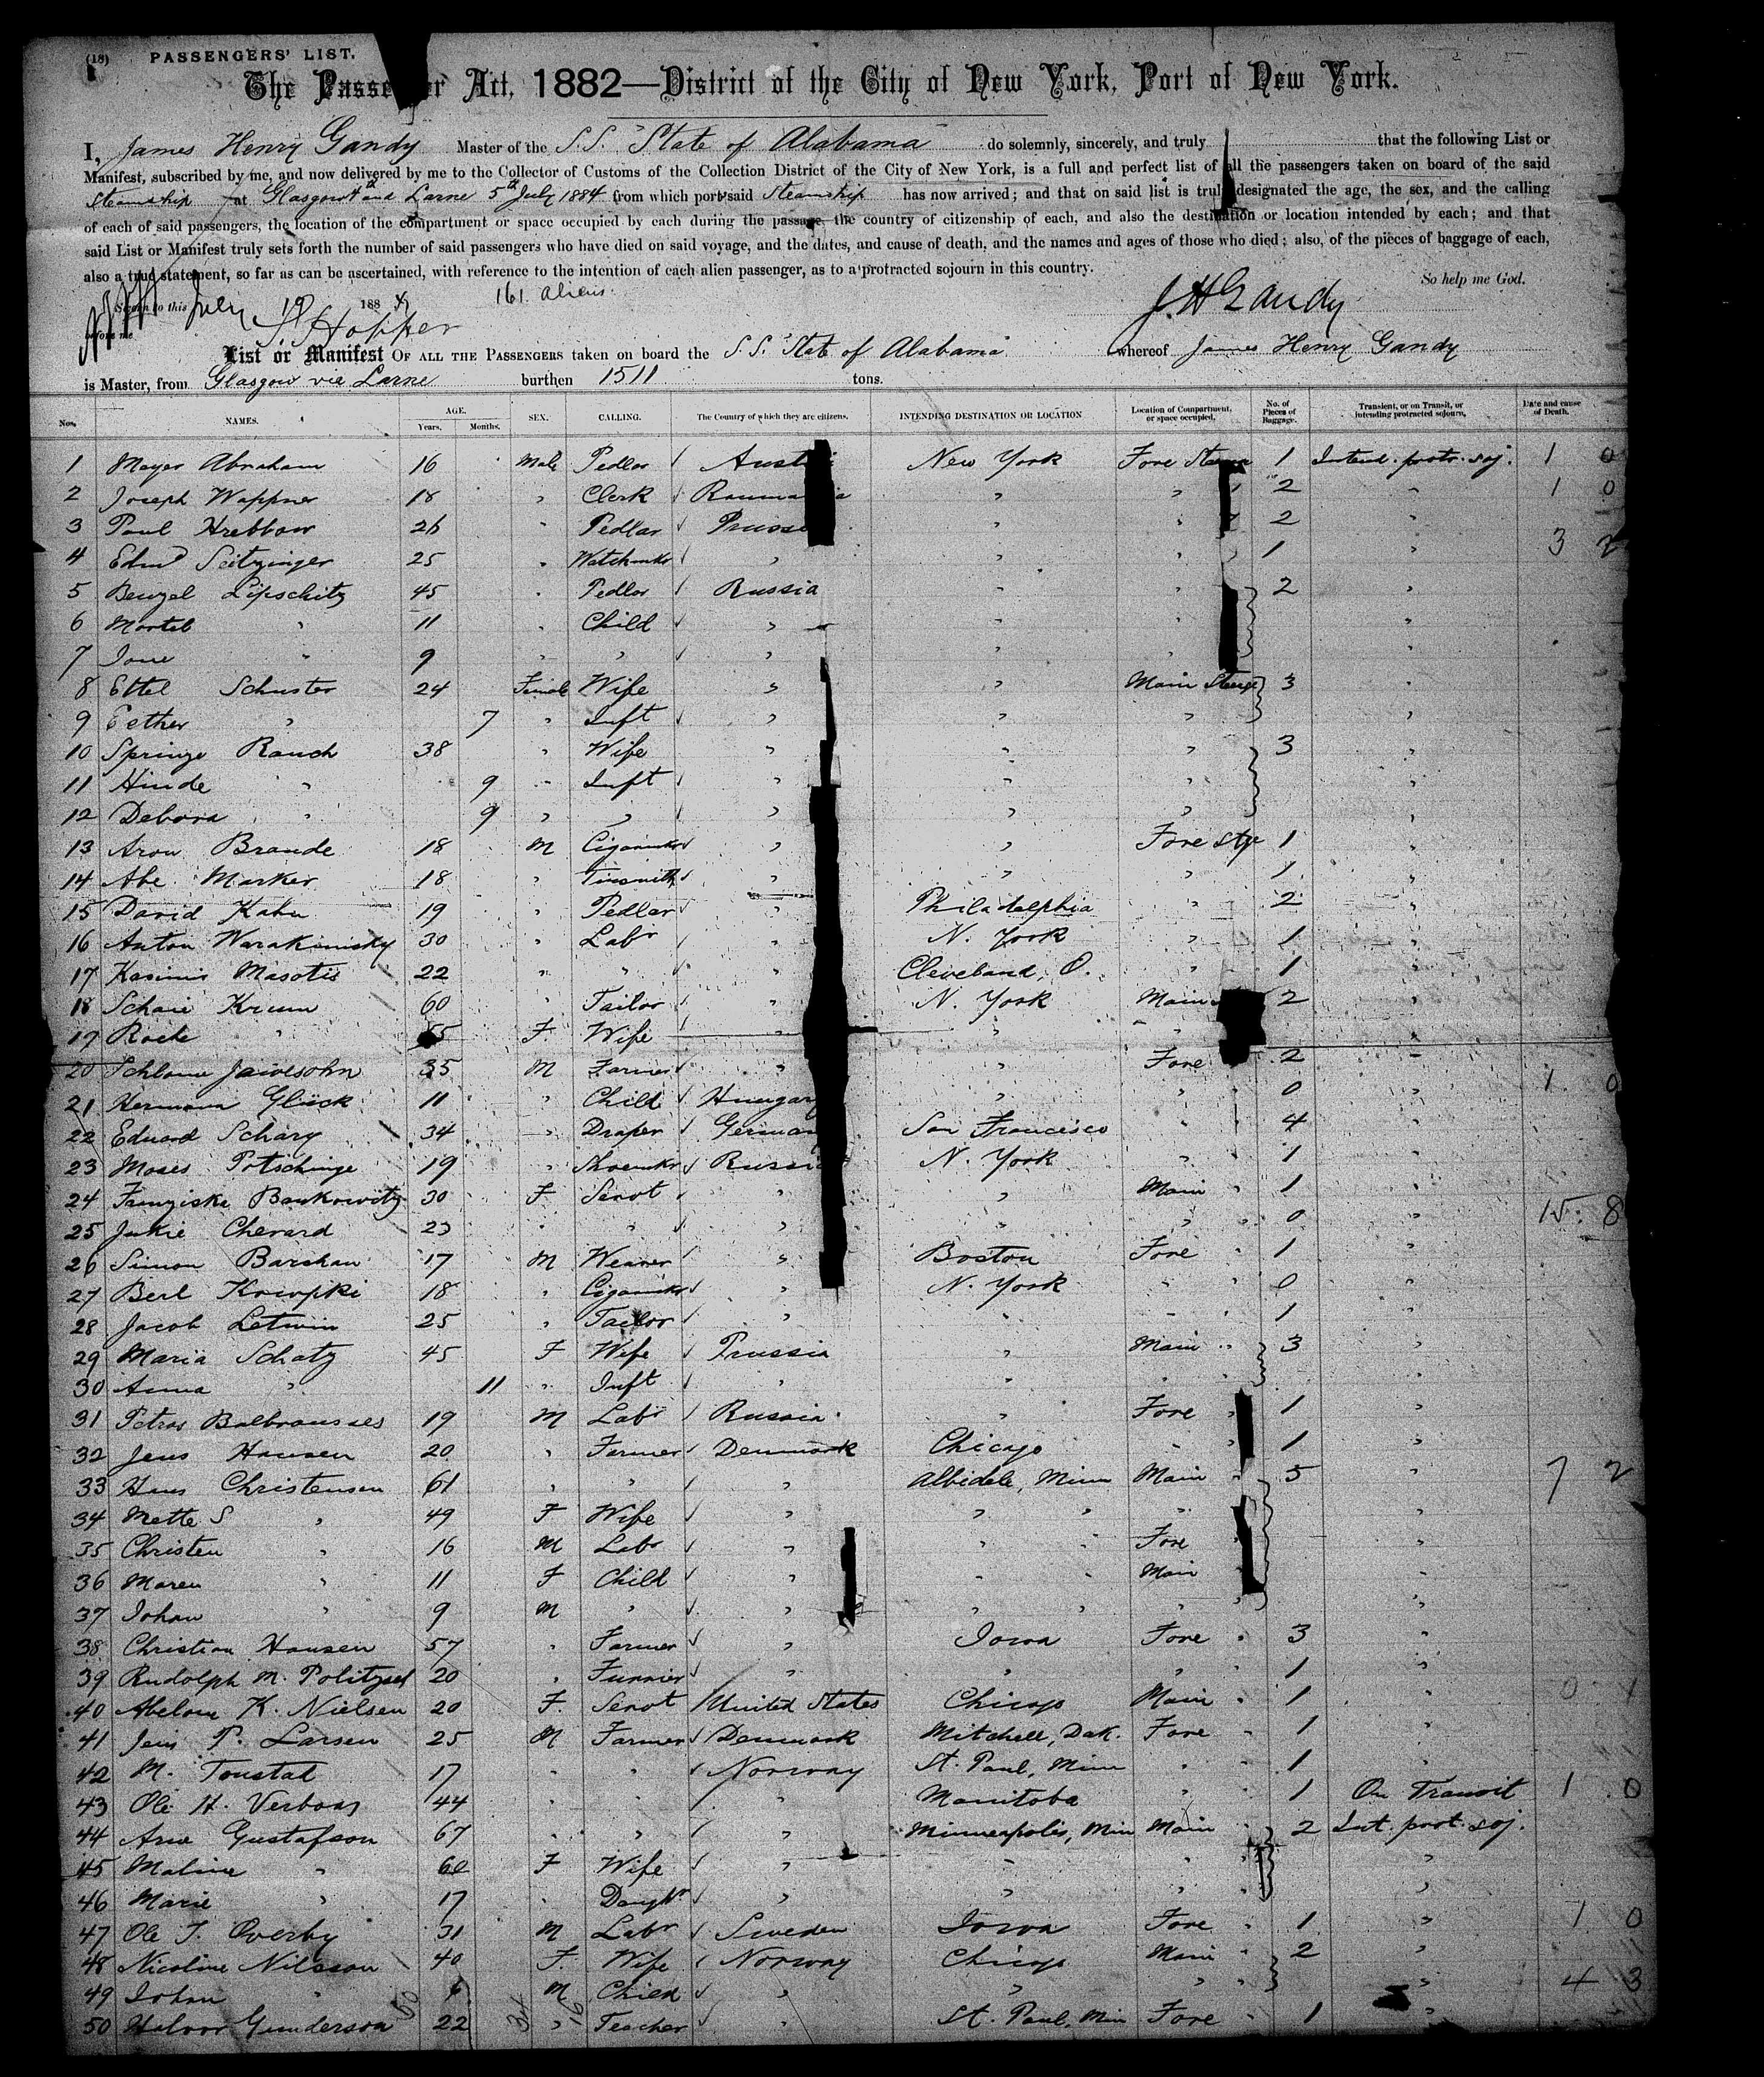 (18) PASSENGERS' LIST.
The Passe er Act, 1882—District of the City of New York, Port of New York.
I, James Henry Gandy Master of the S.S. "State of Alabama" do solemnly, sincerely, and truly that the following List or
Manifest, subscribed by me, and now delivered by me to the Collector of Customs of the Collection District of the City of New York, is a full and perfect list of all the passengers taken on board of the said
Steamship at Glasgow 4th and Larne 5th July 1884 from which port said Steamship has now arrived; and that on said list is truly designated the age, the sex, and the calling
of each of said passengers, the location of the compartment or space occupied by each during the passage, the country of citizenship of each, and also the destination or location intended by each; and that
said List or Manifest truly sets forth the number of said passengers who have died on said voyage, and the dates, and cause of death, and the names and ages of those who died; also, of the pieces of baggage of each,
also a true statement, so far as can be ascertained, with reference to the intention of each alien passenger, as to a protracted sojourn in this country. So help me God.
Sworn to this July 19 1884 161. aliens. J. H Gandy
before me S Hopper
List or Manifest OF ALL THE PASSENGERS taken on board the S.S. "State of Alabama" whereof James Henry Gandy
is Master, from Glasgow via Larne burthen 1511 tons.
Nos. NAMES. AGE. Years. Months. SEX. CALLING. The Country of which they are citizens. INTENDING DESTINATION OR LOCATION Location of Compartment, or space occupied. No. of Pieces of Baggage. Transient, or on Transit, or intending protracted sojourn. Date and cause of Death.
1 Mayer Abraham 16 Male Pedlar Aust New York Fore 1 Intend. protr. soj. 1 0
2 Joseph Wappner 18 " Clerk Rouma ia " " 2 " 1 0
3 Paul Hrebbow 26 " Pedlar Pruss " " 2 "
4 Edmd Seitzinger 25 " Watchmkr " " " 1 " 3 2
5 Benzel Lipschitz 45 " Pedlar Russia " " 2 "
6 Mortel " 11 " Child " " " "
7 Jone " 9 " " " " " "
8 Ettel Schuster 24 Female Wife " " Main Steerge 3 "
9 Esther " 7 " Inft " " " "
10 Springe Rauch 38 " Wife " " " 3 "
11 Hinde " 9 " Inft " " " "
12 Debora " 9 " " " " " "
13 Aron Brande 18 M Cigarmkr " " Fore Stge 1 "
14 Abe Marker 18 " Tinsmith " " " 1 "
15 David Kahn 19 " Pedlar " Philadelphia " 2 "
16 Anton Warakimsky 30 " Labr " N. York " 1 "
17 Kasimir Masotis 22 " " " Cleveland, O. " 1 "
18 Schaie Krumm 60 " Tailor " N. York Main 2 "
19 Roche " 55 F Wife " " " "
20 Schlome Jaivesohn 35 M Farmer " " Fore 2 "
21 Hermann Glück 11 " Child Hungar " " 0 " 1 0
22 Eduard Schary 34 " Draper German San Francisco " 4 "
23 Moses Potschinge 19 " Shoemkr Russi N. York " 1 "
24 Franziske Bankowitz 30 F Servt " " Main " 1 "
25 Jukie Cherard 23 " " " " " 0 " 15 8
26 Simon Barshan 17 M Weaver " Boston Fore " 1 "
27 Berl Kriupki 18 " Cigarmkr " N. York " 0 "
28 Jacob Letwin 25 " Tailor " " " 1 "
29 Maria Schatz 45 F Wife Prussia " Main " 3 "
30 Anna " 11 " Inft " " " "
31 Petras Balbrausses 19 M Labr Russia " Fore " 1 "
32 Jens Hansen 20 " Farmer Denmark Chicago " 1 "
33 Hans Christensen 61 " " " Albidele, Minn Main " 5 " 7 2
34 Mette S " 49 F Wife " " " "
35 Christen " 16 M Labr " " Fore "
36 Maren " 11 F Child " " Main "
37 Johan " 9 M " " " " "
38 Christian Hansen 57 " Farmer " Iowa Fore " 3 "
39 Rudolph M. Politzsel 20 " Furrier " " " 1 "
40 Abelone K. Nielsen 20 F. Servt United States Chicago Main " 1 " 0 1
41 Jens P. Larsen 25 M Farmer Denmark Mitchell, Dak. Fore " 1 "
42 M. Tonstad 17 " " Norway St. Paul, Minn " 1 "
43 Ole H. Verboas 44 " " " Manitoba " 1 On Transit 1 0
44 Arne Gustafson 67 " " " Minneapolis, Min Main 2 Int. prot. soj.
45 Maline " 60 F Wife " " " "
46 Marie " 17 " Daughr " " " "
47 Ole T. Overby 31 M Labr Sweden Iowa Fore " 1 " 1 0
48 Nicoline Nilsson 40 F. Wife Norway Chicago Main " 2 "
49 Johan " 6 M Child " " " " 4 3
50 Halvor Gunderson 22 " Teacher " St. Paul, Min Fore " 1 "
50 34 16